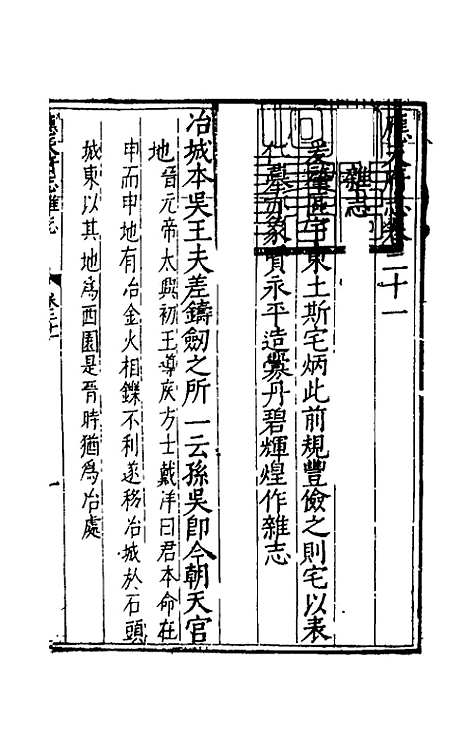 應天府志卷三十一
雜志
爰肇區宇東土斯宅炳此前規豐儉之則宅以表
代墓亦象賢永平造爨丹碧輝煌作雜志
冶城本吳王夫差鑄劒之所一云孫吳即今朝天宮
地晉元帝太興初王導疾方士戴洋曰君本命在
申而申地有冶金火相鑠不利遂移冶城於石頭
城東以其地爲西園是晉時猶爲冶處